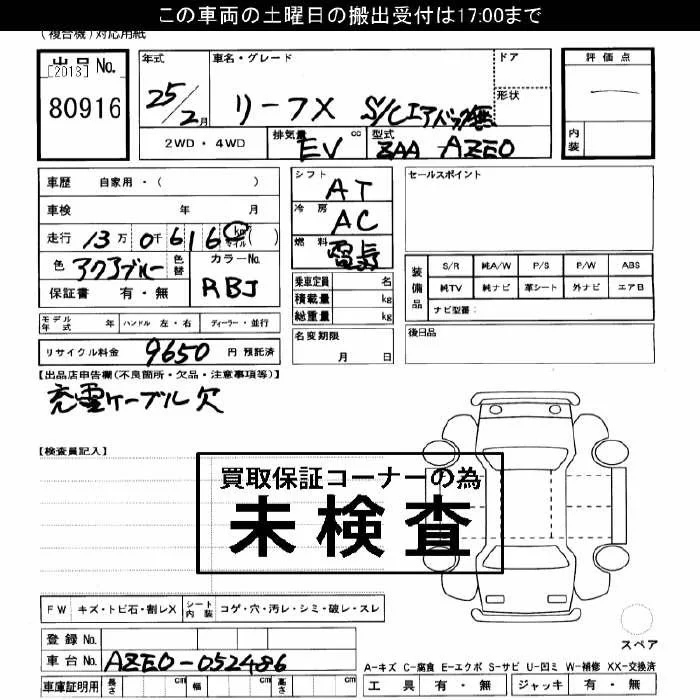 この車両の土曜日の搬出受付は17:00まで
(複合機)対応用紙
出品 No.
[2013]
80916
年式 25/2月
車名・グレード リーフX S/Cエアバック無
ドア
形状
2WD・4WD
排気量 EV cc
型式 ZAA-AZE0
評価点
内装
車歴 自家用・( )
車検 年 月
走行 13万0千616 km マイル ( )
色 アクアブルー 色替
カラーNo. RBJ
保証書 有・無
シフト AT
冷房 AC
燃料 電気
乗車定員 名
積載量 kg
総重量 kg
セールスポイント
装備品
S/R 純A/W P/S P/W ABS
純TV 純ナビ 革シート 外ナビ エアB
ナビ型番:
モデル年式 年 ハンドル 左・右 ディーラー・並行
名変期限
月 日
後日品
リサイクル料金 9650 円 預託済
【出品店申告欄(不良箇所・欠品・注意事項等)】
充電ケーブル欠
【検査員記入】
買取保証コーナーの為
未検査
FW キズ・トビ石・割レX シート内装 コゲ・穴・汚レ・シミ・破レ・スレ
登録No.
車台No. AZE0-052486
車庫証明用 長さ cm 幅 cm 高さ cm
スペア
A-キズ C-腐食 E-エクボ S-サビ U-凹ミ W-補修 XX-交換済
工具 有・無 ジャッキ 有・無